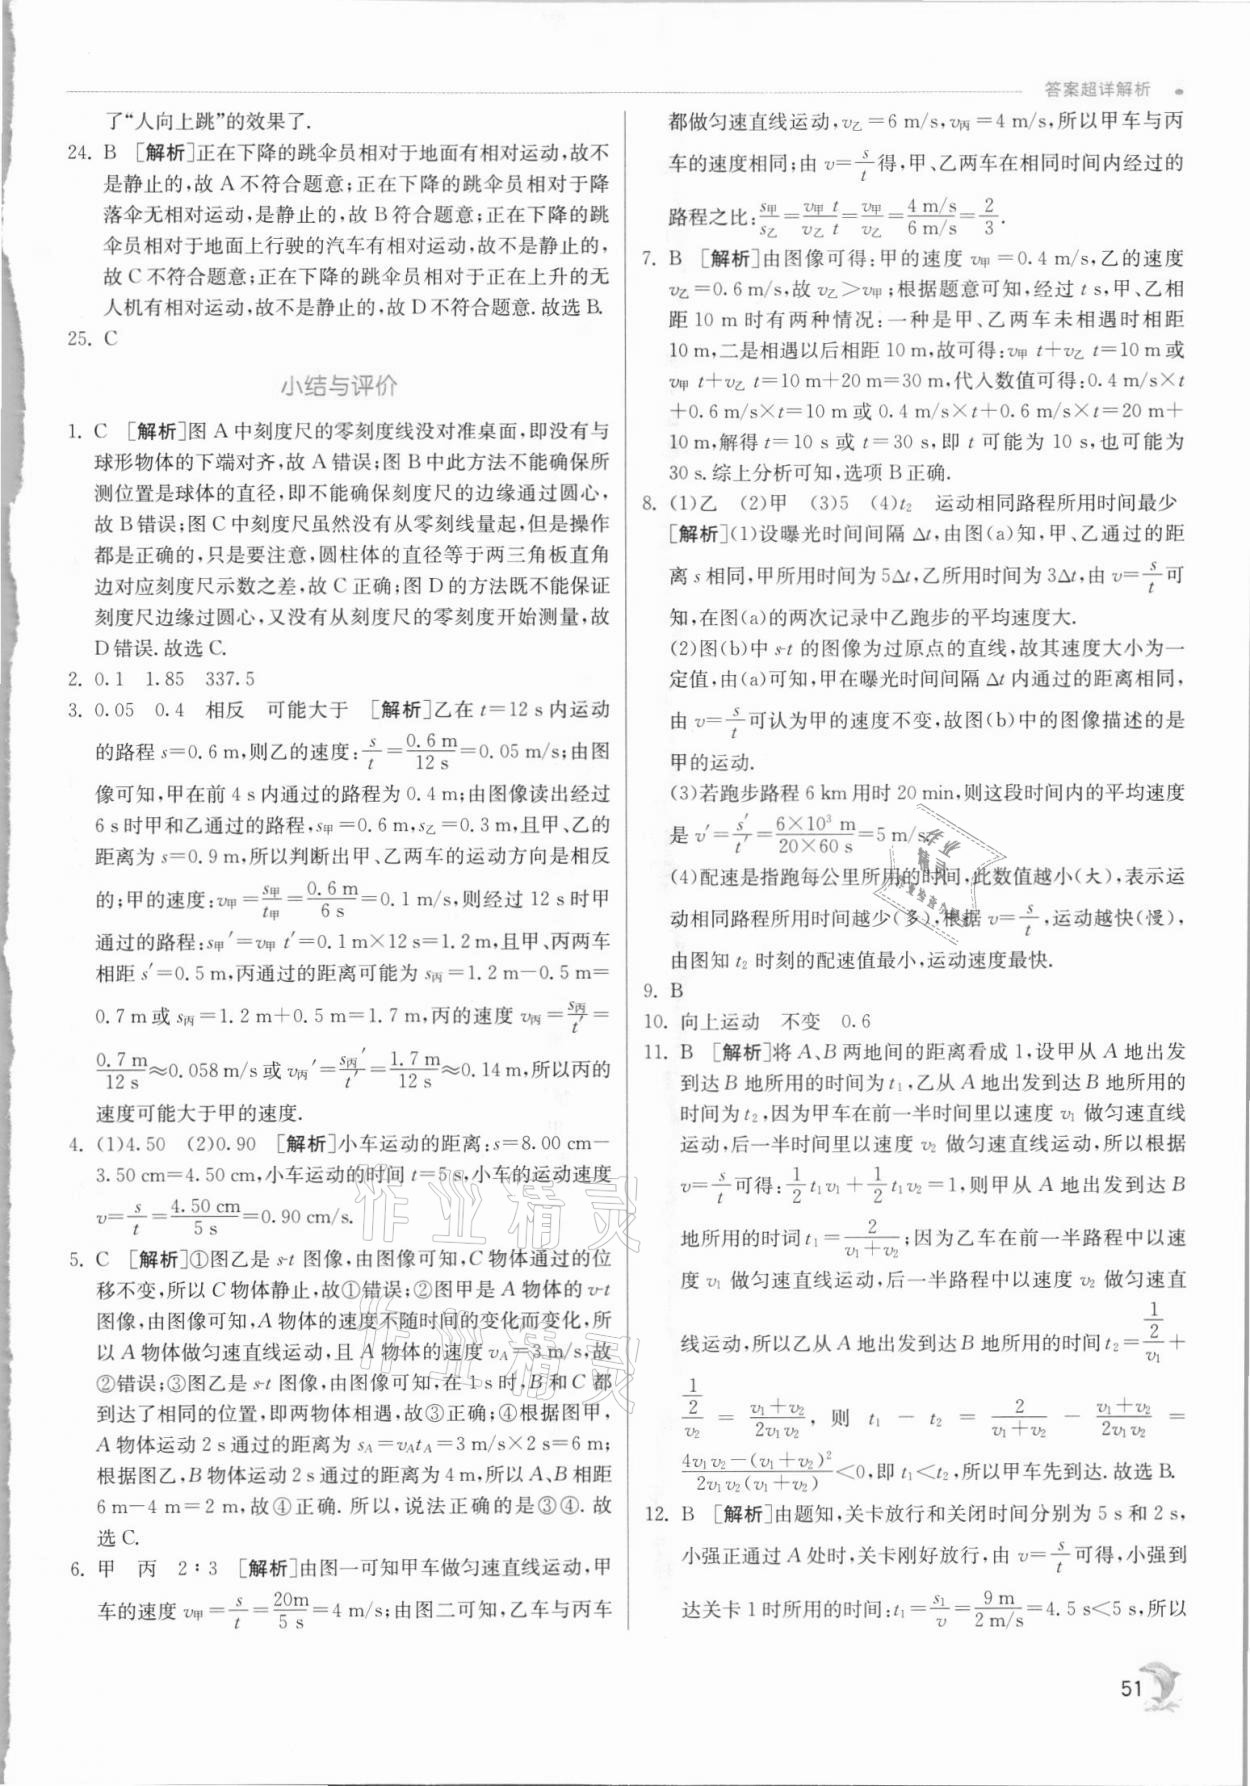 答案超详解析
了“人向上跳”的效果了.
24. B [解析]正在下降的跳伞员相对于地面有相对运动,故不
是静止的,故 A不符合题意;正在下降的跳伞员相对于降
落伞无相对运动,是静止的,故 B符合题意;正在下降的跳
伞员相对于地面上行驶的汽车有相对运动,故不是静止的,
故 C不符合题意;正在下降的跳伞员相对于正在上升的无
人机有相对运动,故不是静止的,故 D不符合题意.故选 B.
25. C
小结与评价
1. C [解析]图 A 中刻度尺的零刻度线没对准桌面,即没有与
球形物体的下端对齐,故 A错误;图 B中此方法不能确保所
测位置是球体的直径,即不能确保刻度尺的边缘通过圆心,
故 B错误;图 C中刻度尺虽然没有从零刻线量起,但是操作
都是正确的,只是要注意,圆柱体的直径等于两三角板直角
边对应刻度尺示数之差,故 C正确;图 D的方法既不能保证
刻度尺边缘过圆心,又没有从刻度尺的零刻度开始测量,故
D错误.故选C.
2. 0.1 1.85 337.5
3. 0.05 0.4 相反 可能大于 [解析]乙在 t=12 s内运动
的路程 s=0.6 m,则乙的速度: s/t = 0.6 m/12 s =0.05 m/s;由图
像可知,甲在前 4 s内通过的路程为 0.4 m;由图像读出经过
6 s时甲和乙通过的路程,s甲=0.6 m,s乙=0.3 m,且甲、乙的
距离为 s=0.9 m,所以判断出甲、乙两车的运动方向是相反
的;甲的速度:v甲= s甲/t甲 = 0.6 m/6 s =0.1 m/s,则经过 12 s时甲
通过的路程:s甲′=v甲 t′=0.1 m×12 s=1.2 m,且甲、丙两车
相距 s′=0.5 m,丙通过的距离可能为 s丙=1.2 m-0.5 m=
0.7 m或 s丙=1.2 m+0.5 m=1.7 m,丙的速度 v丙= s丙/t′ =
0.7 m/12 s ≈0.058 m/s或 v丙′= s丙′/t′ = 1.7 m/12 s ≈0.14 m/s,所以丙的
速度可能大于甲的速度.
4. (1)4.50 (2)0.90 [解析]小车运动的距离:s=8.00 cm-
3.50 cm=4.50 cm,小车运动的时间 t=5 s,小车的运动速度
v= s/t = 4.50 cm/5 s =0.90 cm/s.
5. C [解析]①图乙是 s-t 图像,由图像可知,C 物体通过的位
移不变,所以 C物体静止,故①错误;②图甲是 A 物体的 v-t
图像,由图像可知,A物体的速度不随时间的变化而变化,所
以 A 物体做匀速直线运动,且 A 物体的速度 vA=3 m/s,故
②错误;③图乙是 s-t 图像,由图像可知,在 1 s时,B 和 C 都
到达了相同的位置,即两物体相遇,故③正确;④根据图甲,
A 物体运动 2 s通过的距离为 sA=vAtA=3 m/s×2 s=6 m;
根据图乙,B 物体运动 2 s通过的距离为 4 m,所以 A、B 相距
6 m-4 m=2 m,故④正确. 所以,说法正确的是③④. 故
选 C.
6. 甲 丙 2:3 [解析]由图一可知甲车做匀速直线运动,甲
车的速度 v甲= s/t = 20m/5 s =4 m/s;由图二可知,乙车与丙车
都做匀速直线运动,v乙=6 m/s,v丙=4 m/s,所以甲车与丙
车的速度相同;由 v= s/t 得,甲、乙两车在相同时间内经过的
路程之比: s甲/s乙 = v甲 t/v乙 t = v甲/v乙 = 4 m/s/6 m/s = 2/3 .
7. B [解析]由图像可得:甲的速度 v甲=0.4 m/s,乙的速度
v乙=0.6 m/s,故 v乙>v甲;根据题意可知,经过 t s,甲、乙相
距 10 m时有两种情况:一种是甲、乙两车未相遇时相距
10 m,二是相遇以后相距 10 m,故可得:v甲 t+v乙 t=10 m或
v甲 t+v乙 t=10 m+20 m=30 m,代入数值可得:0.4 m/s×t
+0.6 m/s×t=10 m 或 0.4 m/s×t+0.6 m/s×t=20 m+
10 m,解得 t=10 s 或 t=30 s,即 t 可能为 10 s,也可能为
30 s.综上分析可知,选项 B正确.
8. (1)乙 (2)甲 (3)5 (4)t₂ 运动相同路程所用时间最少
[解析](1)设曝光时间间隔 Δt,由图(a)知,甲、乙通过的距
离 s相同,甲所用时间为 5Δt,乙所用时间为 3Δt,由 v= s/t 可
知,在图(a)的两次记录中乙跑步的平均速度大.
(2)图(b)中 s-t 的图像为过原点的直线,故其速度大小为一
定值,由(a)可知,甲在曝光时间间隔 Δt 内通过的距离相同,
由 v= s/t 可认为甲的速度不变,故图(b)中的图像描述的是
甲的运动.
(3)若跑步路程 6 km用时 20 min,则这段时间内的平均速度
是 v′= s′/t′ = 6×10³ m/20×60 s =5 m/s.
(4)配速是指跑每公里所用的时间,此数值越小(大),表示运
动相同路程所用时间越少(多),根据 v= s/t ,运动越快(慢),
由图知 t₂ 时刻的配速值最小,运动速度最快.
9. B
10. 向上运动 不变 0.6
11. B [解析]将 A、B 两地间的距离看成 1,设甲从 A 地出发
到达 B 地所用的时间为 t₁,乙从 A 地出发到达 B 地所用的
时间为 t₂,因为甲车在前一半时间里以速度 v₁ 做匀速直线
运动,后一半时间里以速度 v₂ 做匀速直线运动,所以根据
v= s/t 可得: 1/2 t₁v₁+ 1/2 t₁v₂=1,则甲从 A 地出发到达 B
地所用的时词 t₁= 2/(v₁+v₂) ;因为乙车在前一半路程中以速
度 v₁ 做匀速直线运动,后一半路程中以速度 v₂ 做匀速直
线运动,所以乙从 A 地出发到达 B 地所用的时间 t₂= (1/2)/v₁ +
(1/2)/v₂ = (v₁+v₂)/2v₁v₂ , 则 t₁ - t₂ = 2/(v₁+v₂) - (v₁+v₂)/2v₁v₂ =
(4v₁v₂-(v₁+v₂)²)/(2v₁v₂(v₁+v₂)) <0,即 t₁<t₂,所以甲车先到达.故选 B.
12. B [解析]由题知,关卡放行和关闭时间分别为 5 s和 2 s,
小强正通过 A 处时,关卡刚好放行,由 v= s/t 可得,小强到
达关卡 1时所用的时间:t₁= s₁/v = 9 m/2 m/s =4.5 s<5 s,所以
51
作业精灵
作业精灵
作业
精灵